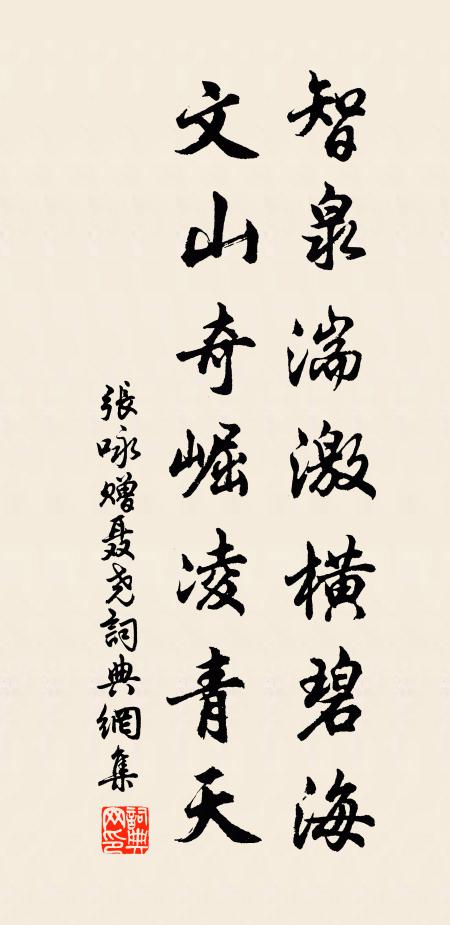 智泉湍激橫碧海
文山奇崛凌青天
張咏贈聂尧詞典網集
詞典网印